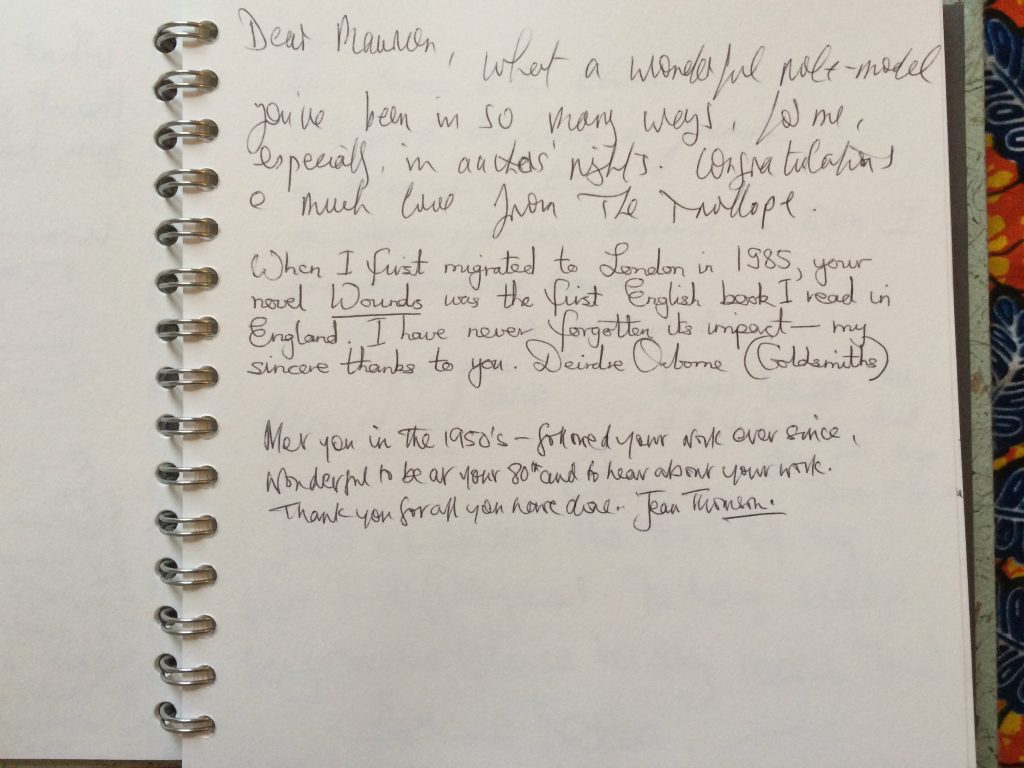 Dear Maureen, What a wonderful role-model
you've been in so many ways, for me,
especially, in authors' rights. Congratulations
& much love from The Trollope.
When I first migrated to London in 1985, your
novel Wounds was the first English book I read in
England. I have never forgotten its impact — my
sincere thanks to you. Deirdre Osborne (Goldsmiths)
Met you in the 1950's - followed your work ever since,
Wonderful to be at your 80th and to hear about your work.
Thank you for all you have done. Jean Thomson.